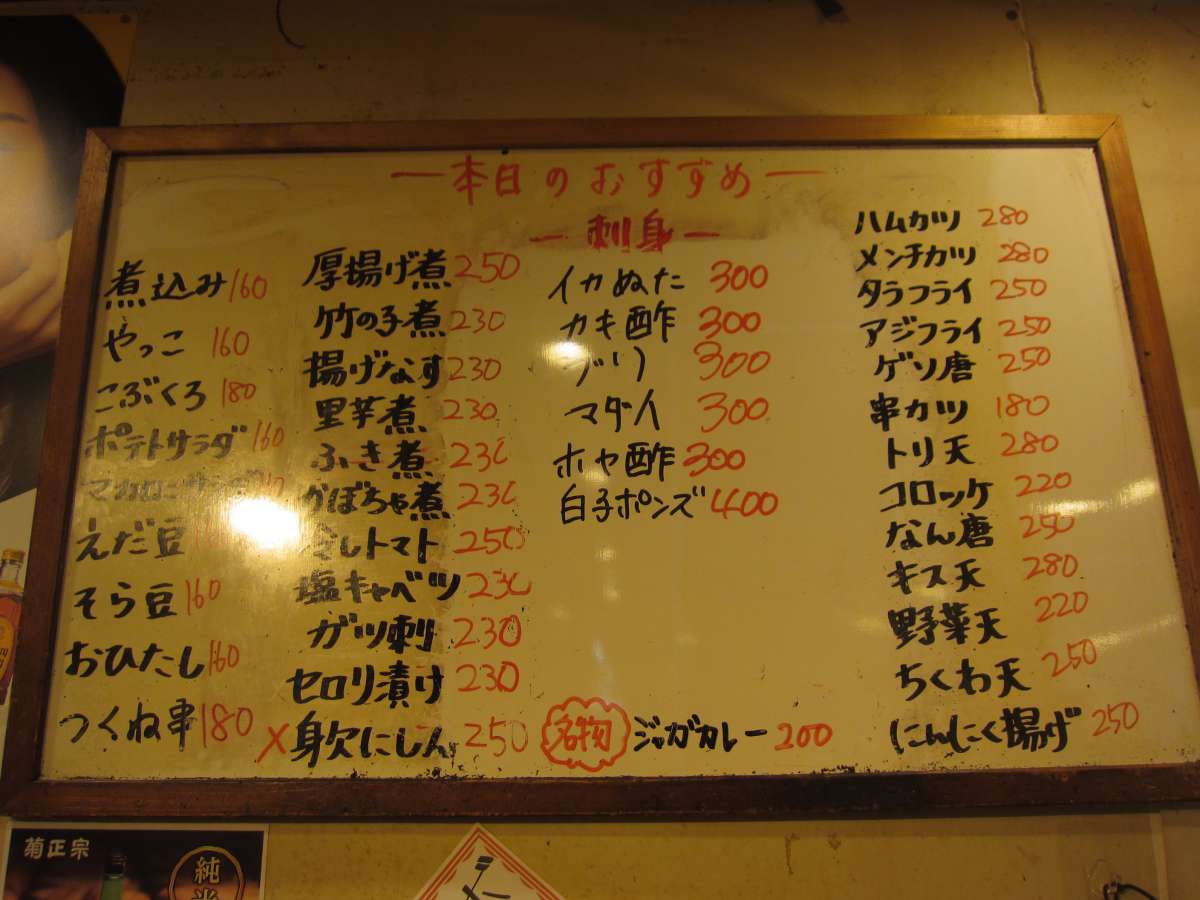 本日のおすすめ
煮込み 160
やっこ 160
こぶくろ 180
ポテトサラダ 160
マカロニサラダ
えだ豆
そら豆 160
おひたし 160
つくね串 180
厚揚げ煮 250
竹の子煮 230
揚げなす 230
里芋煮 230
ふき煮 230
かぼちゃ煮 230
冷しトマト 250
塩キャベツ 230
ガツ刺 230
セロリ漬け 230
×身欠にしん 250
刺身
イカぬた 300
カキ酢 300
ブリ 300
マダイ 300
ホヤ酢 300
白子ポンズ 400
名物 ジャガカレー 200
ハムカツ 280
メンチカツ 280
タラフライ 250
アジフライ 250
ゲソ唐 250
串カツ 180
トリ天 280
コロッケ 220
なん唐 250
キス天 280
野菜天 220
ちくわ天 250
にんにく揚げ 250
菊正宗
純米